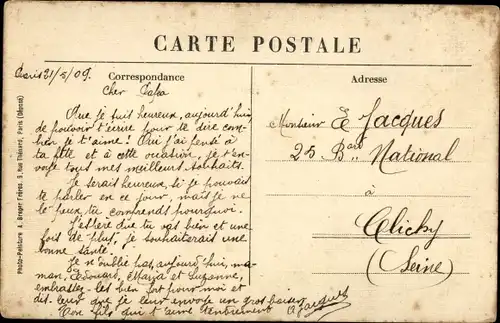 CARTE POSTALE
Correspondance
Adresse
Paris 31/5/09.
Cher Papa
Que je suis heureux, aujourd'hui,
de pouvoir t'écrire pour te dire com-
bien je t'aime! Oui j'ai pensé à
ta fête et à cette occasion, je t'en-
voie tous mes meilleurs souhaits.
Je serais heureux si je pouvais
te parler en ce jour, mais je ne
le peux, tu comprends pourquoi.
J'espère que tu vas bien et une
fois de plus, je souhaiterais une
bonne santé.
Je n'oublie pas, aujourd'hui, ma-
man, Edouard, Maria et Suzanne,
embrasse-les bien fort pour moi et
dis-leur que je leur envoie un gros baiser
Ton fils qui t'aime tendrement
Jacques
Monsieur E Jacques
25 Bard National
à
Clichy
(Seine)
Photo-Peinture A. Breger Frères, 9, rue Thénard, Paris (Déposé)